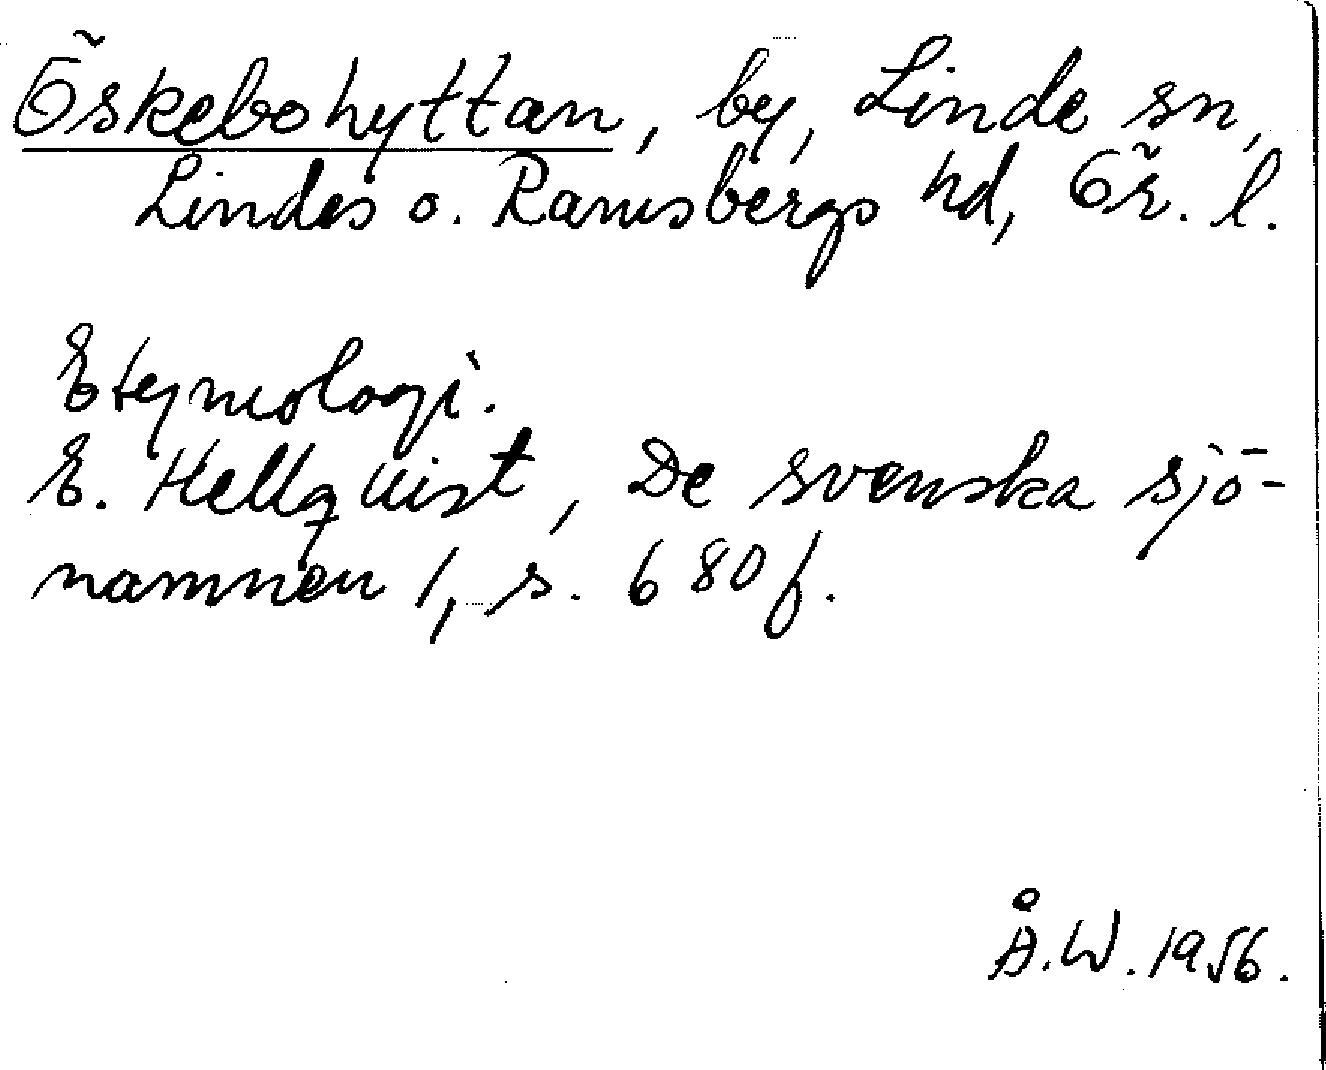 Öskebohyttan, by, Linde sn,
Lindes o. Ramsbergs hd, Ör. l.
Etymologi.
E. Hellquist, De svenska sjö-
namnen 1, s. 680 f.
Å.W. 1956.